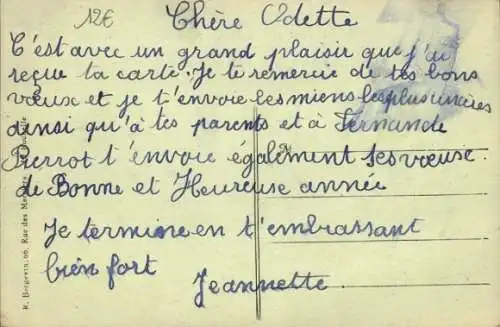 12€
Chère Odette
C'est avec un grand plaisir que j'ai
reçue ta carte. Je te remercie de tes bons
vœux et je t'envoie les miens les plus sincères
ainsi qu'à tes parents et à Fernande
Pierrot t'envoie également ses vœuse
de Bonne et Heureuse année
Je termine en t'embrassant
bien fort
Jeannette
R. Bergevin, 66, Rue des